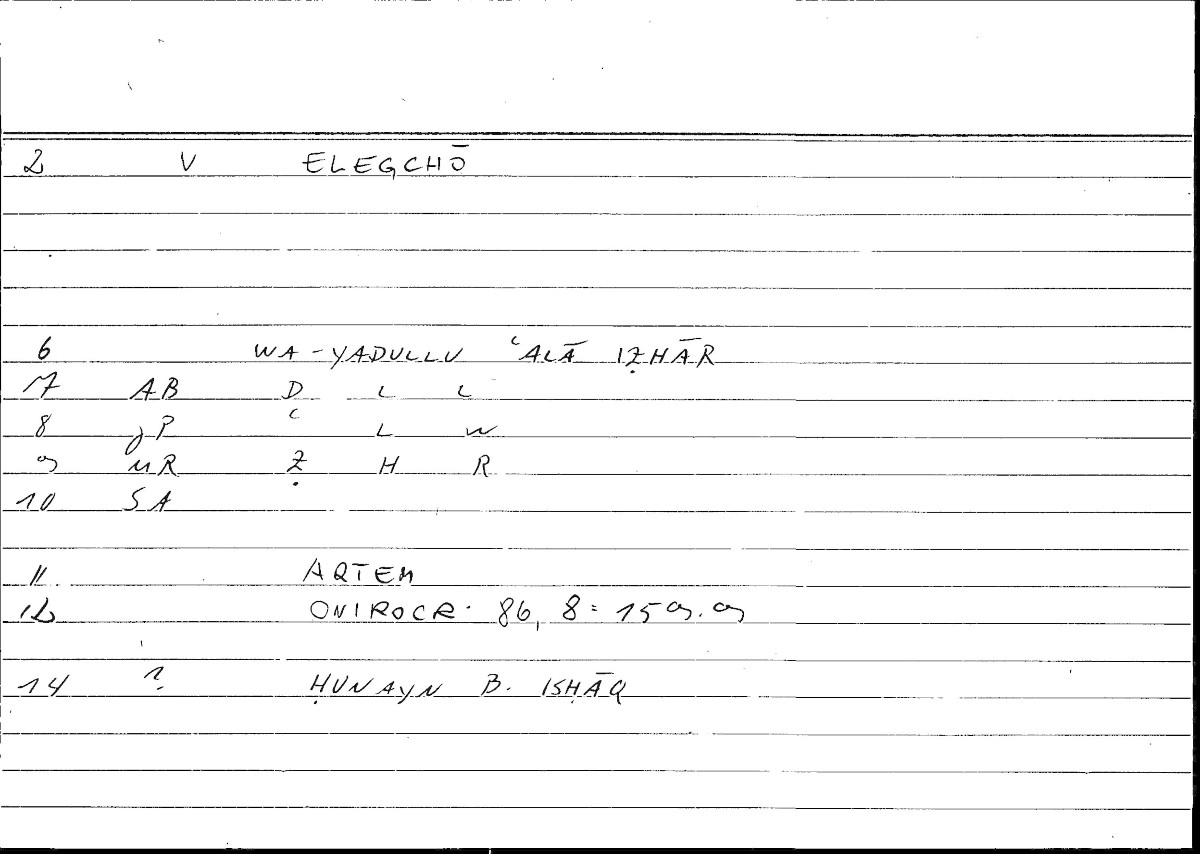 2 V ELEGCHŌ
6 WA-YADULLU ʿALĀ IẒHĀR
7 AB D L L
8 JP ʿ L W
9 MR Ẓ H R
10 SA
11 ARTEM
12 ONIROCR. 86, 8 = 159.9
14 ? ḤUNAYN B. ISḤĀQ